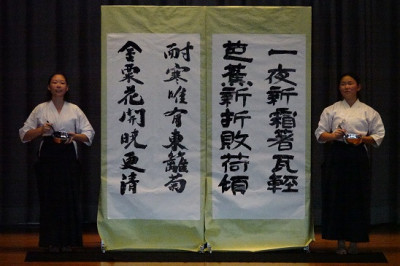 一夜新霜著瓦輕
芭蕉新折敗荷傾
耐寒唯有東籬菊
金粟花開曉更清